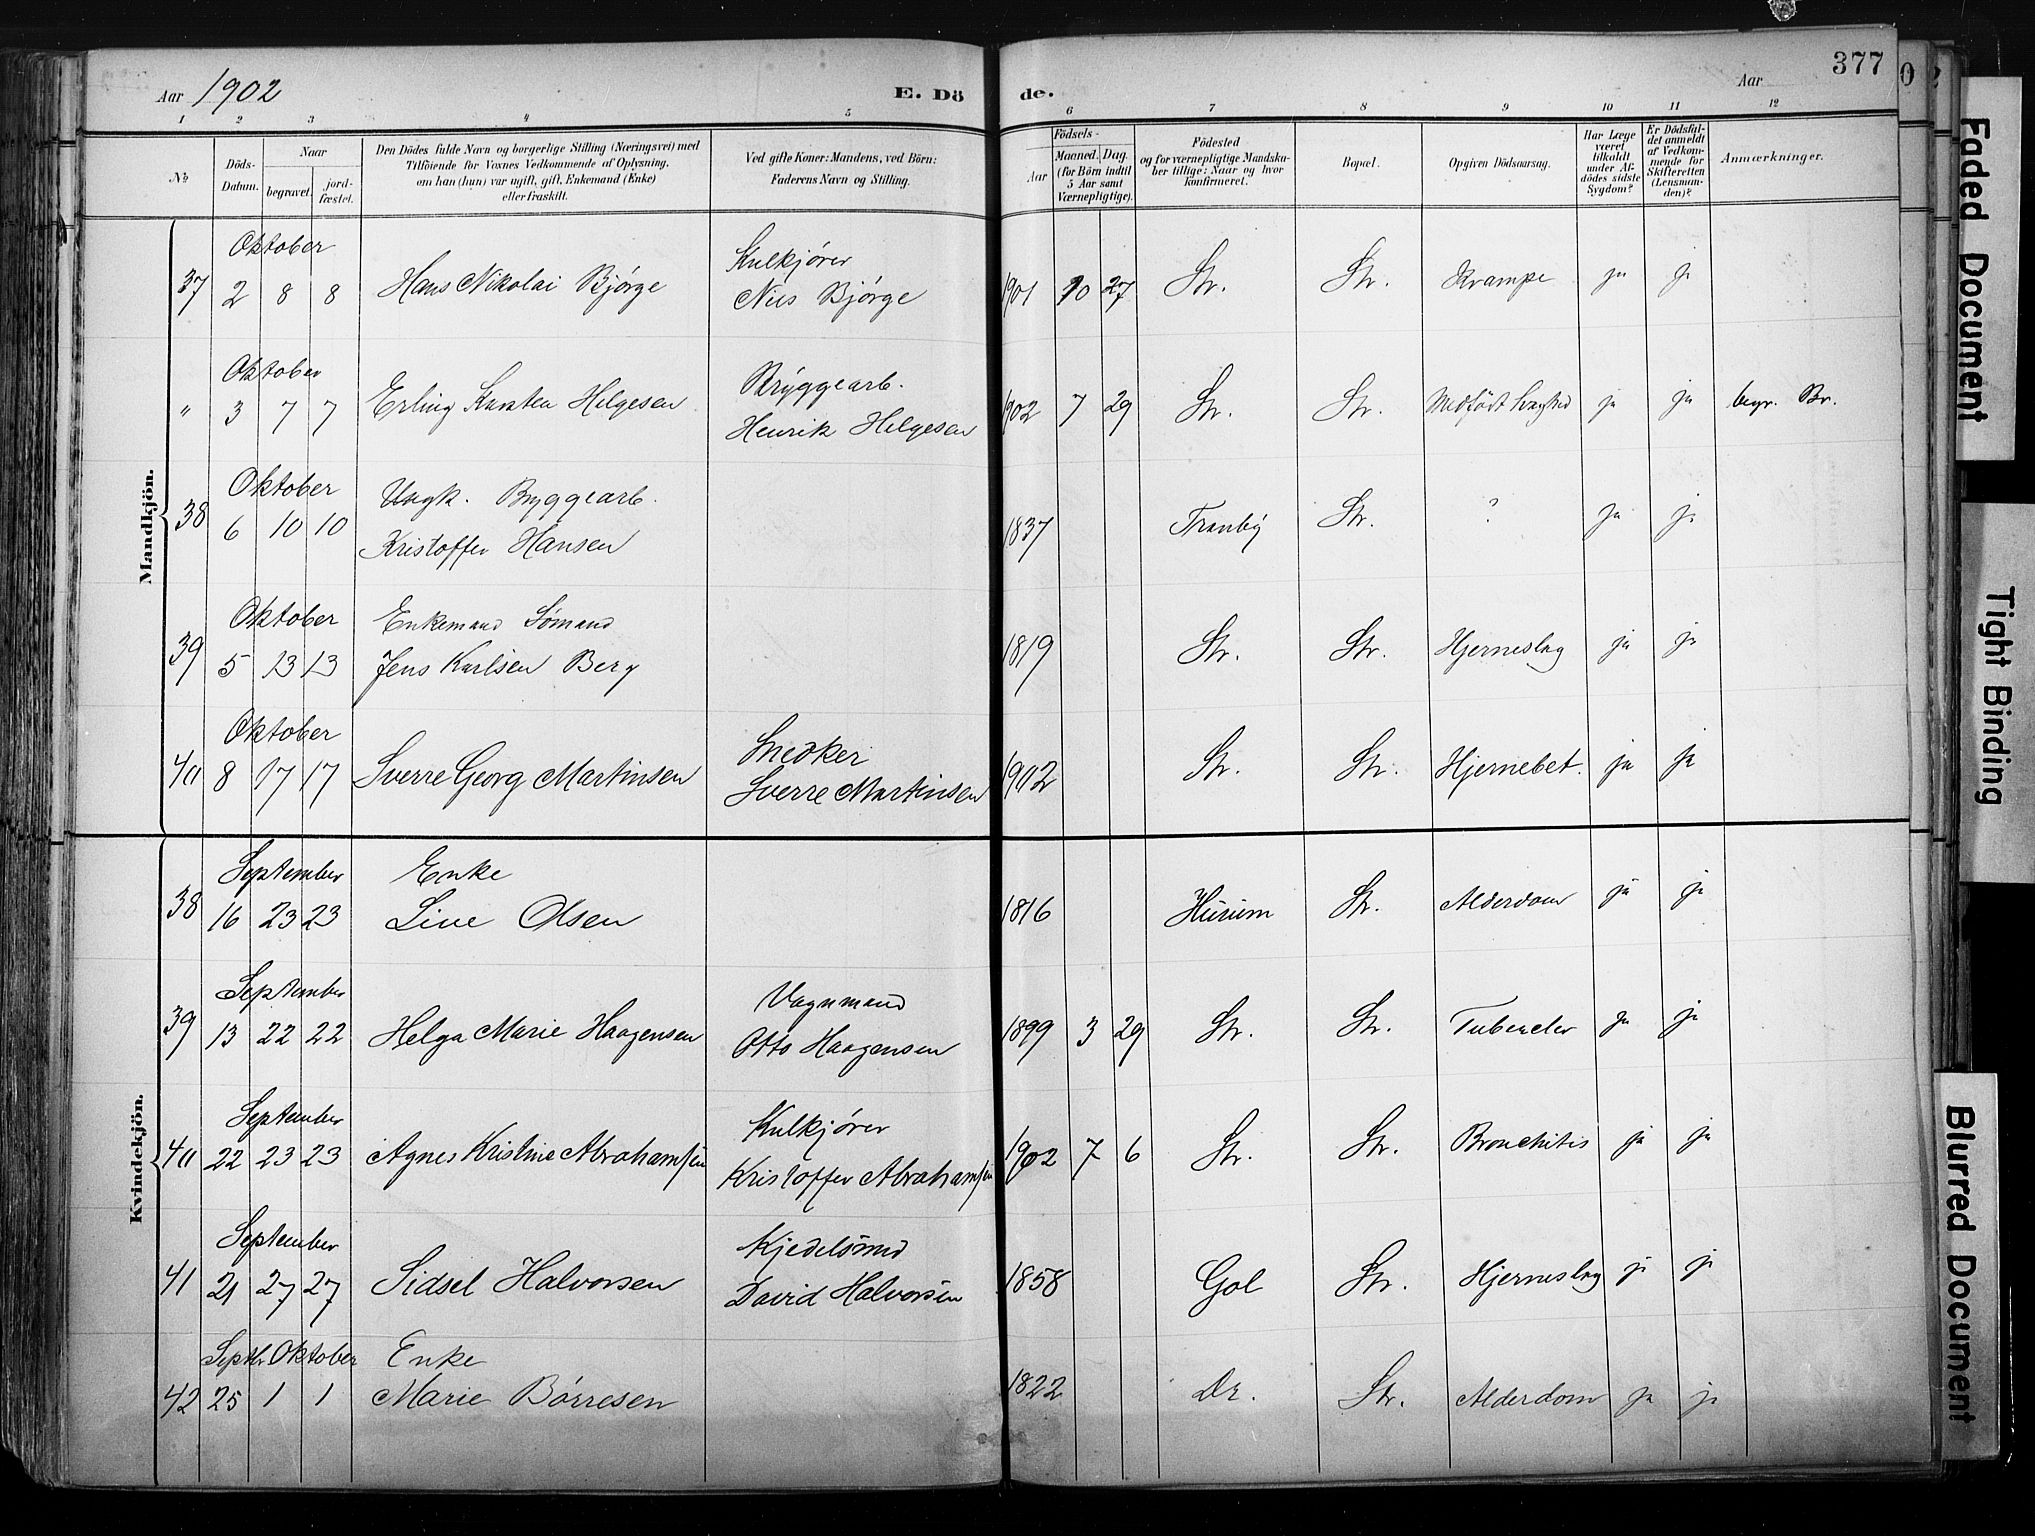 Aar 1902
E. Dö de.
Aar
377
1 2 3 4 5 6 7 8 9 10 11 12
No
Döds-Datum.
Naar
begravet.
jord-fæstet.
Den Dödes fulde Navn og borgerlige Stilling (Næringsvei) med
Tilföiende för Voxnes Vedkommende af Oplysning,
om han (hun) var ugift, gift, Enkemand (Enke)
eller fraskilt.
Ved gifte Koner: Mandens, ved Börn:
Faderens Navn og Stilling.
Födsels-
Aar
Maaned. Dag.
(for Börn indtil
5 Aar samt
Værnepligtige).
Födested
og for værnepligtige Mandska-
ber tillige: Naar og hvor
konfirmeret.
Bopæl.
Opgiven Dödsaarsag.
Har Læge
været
tilkaldt
under Af-
dödes sidste
Sygdom?
Er Dödsfal-
det anmeldt
af Vedkom-
mende for
Skifteretten
(Lensman-
den)?
Anmærkninger.
Mandkjön.
Oktober Kulkjører
37 2 8 8 Hans Nikolai Bjørge Nils Bjørge 1901 10 27 Str. Str. Krampe ja ja
Oktober Bryggearb.
" 3 7 7 Erling Karsten Helgesen Henrik Helgesen 1902 7 29 Str. Str. Medfödt Svaghed ja ja begr. Br.
Oktober Ungk. Bryggearb.
38 6 10 10 Kristoffer Hansen 1837 Tranby Str. ? ja ja
Oktober Enkemand Sømand
39 5 13 13 Jens Karlsen Berg 1819 Str. Str. Hjerneslag ja ja
Oktober Snedker
40 8 17 17 Sverre Georg Martinsen Sverre Martinsen 1902 Str. Str. Hjernebet. ja ja
Kvindekjön.
September Enke
38 16 23 23 Line Olsen 1816 Hurum Str. Alderdom ja ja
September Vognmand
39 13 22 22 Helga Marie Haagensen Otto Haagensen 1899 3 29 Str. Str. Tubercler ja ja
September Kulkjører
40 22 23 23 Agnes Kristine Abrahamsen Kristoffer Abrahamsen 1902 7 6 Str. Str. Bronchitis ja ja
September Kjedelsmed
41 21 27 27 Sidsel Halvorsen David Halvorsen 1858 Gol Str. Hjerneslag ja ja
Septbr Oktober Enke
42 25 1 1 Marie Börresen 1822 Dr. Str. Alderdom ja ja
Faded Document
Tight Binding
Blurred Document